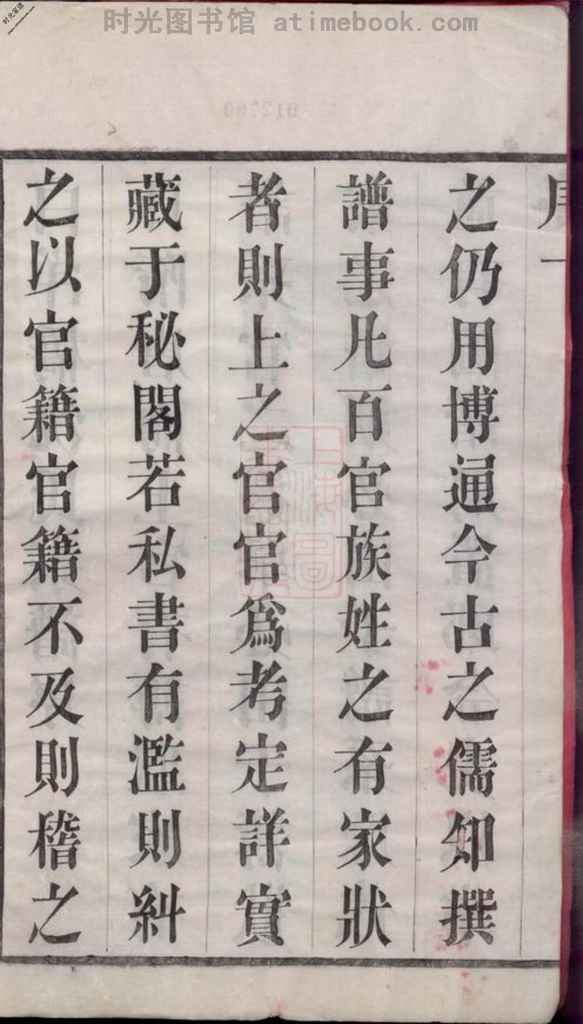 时光图书馆 atimebook.com
之仍用博通今古之儒知撰
譜事凡百官族姓之有家狀
者則上之官官爲考定詳實
藏于秘閣若私書有濫則糾
之以官籍官籍不及則稽之